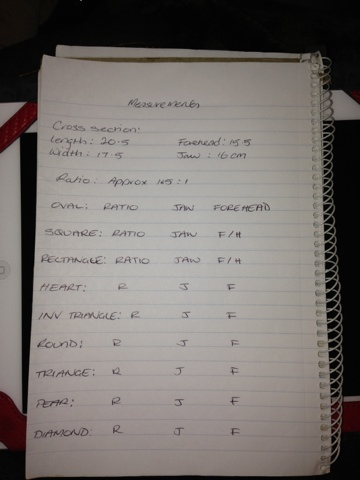 Measurements
Cross section:
Length: 20.5 Forehead: 15.5
Width: 17.5 Jaw: 16cm
Ratio: Approx 1.5:1
OVAL: RATIO JAW FOREHEAD
SQUARE: RATIO JAW F/H
RECTANGLE: RATIO JAW F/H
HEART: R J F
INV TRIANGLE: R J F
ROUND: R J F
TRIANGE: R J F
PEAR: R J F
DIAMOND: R J F